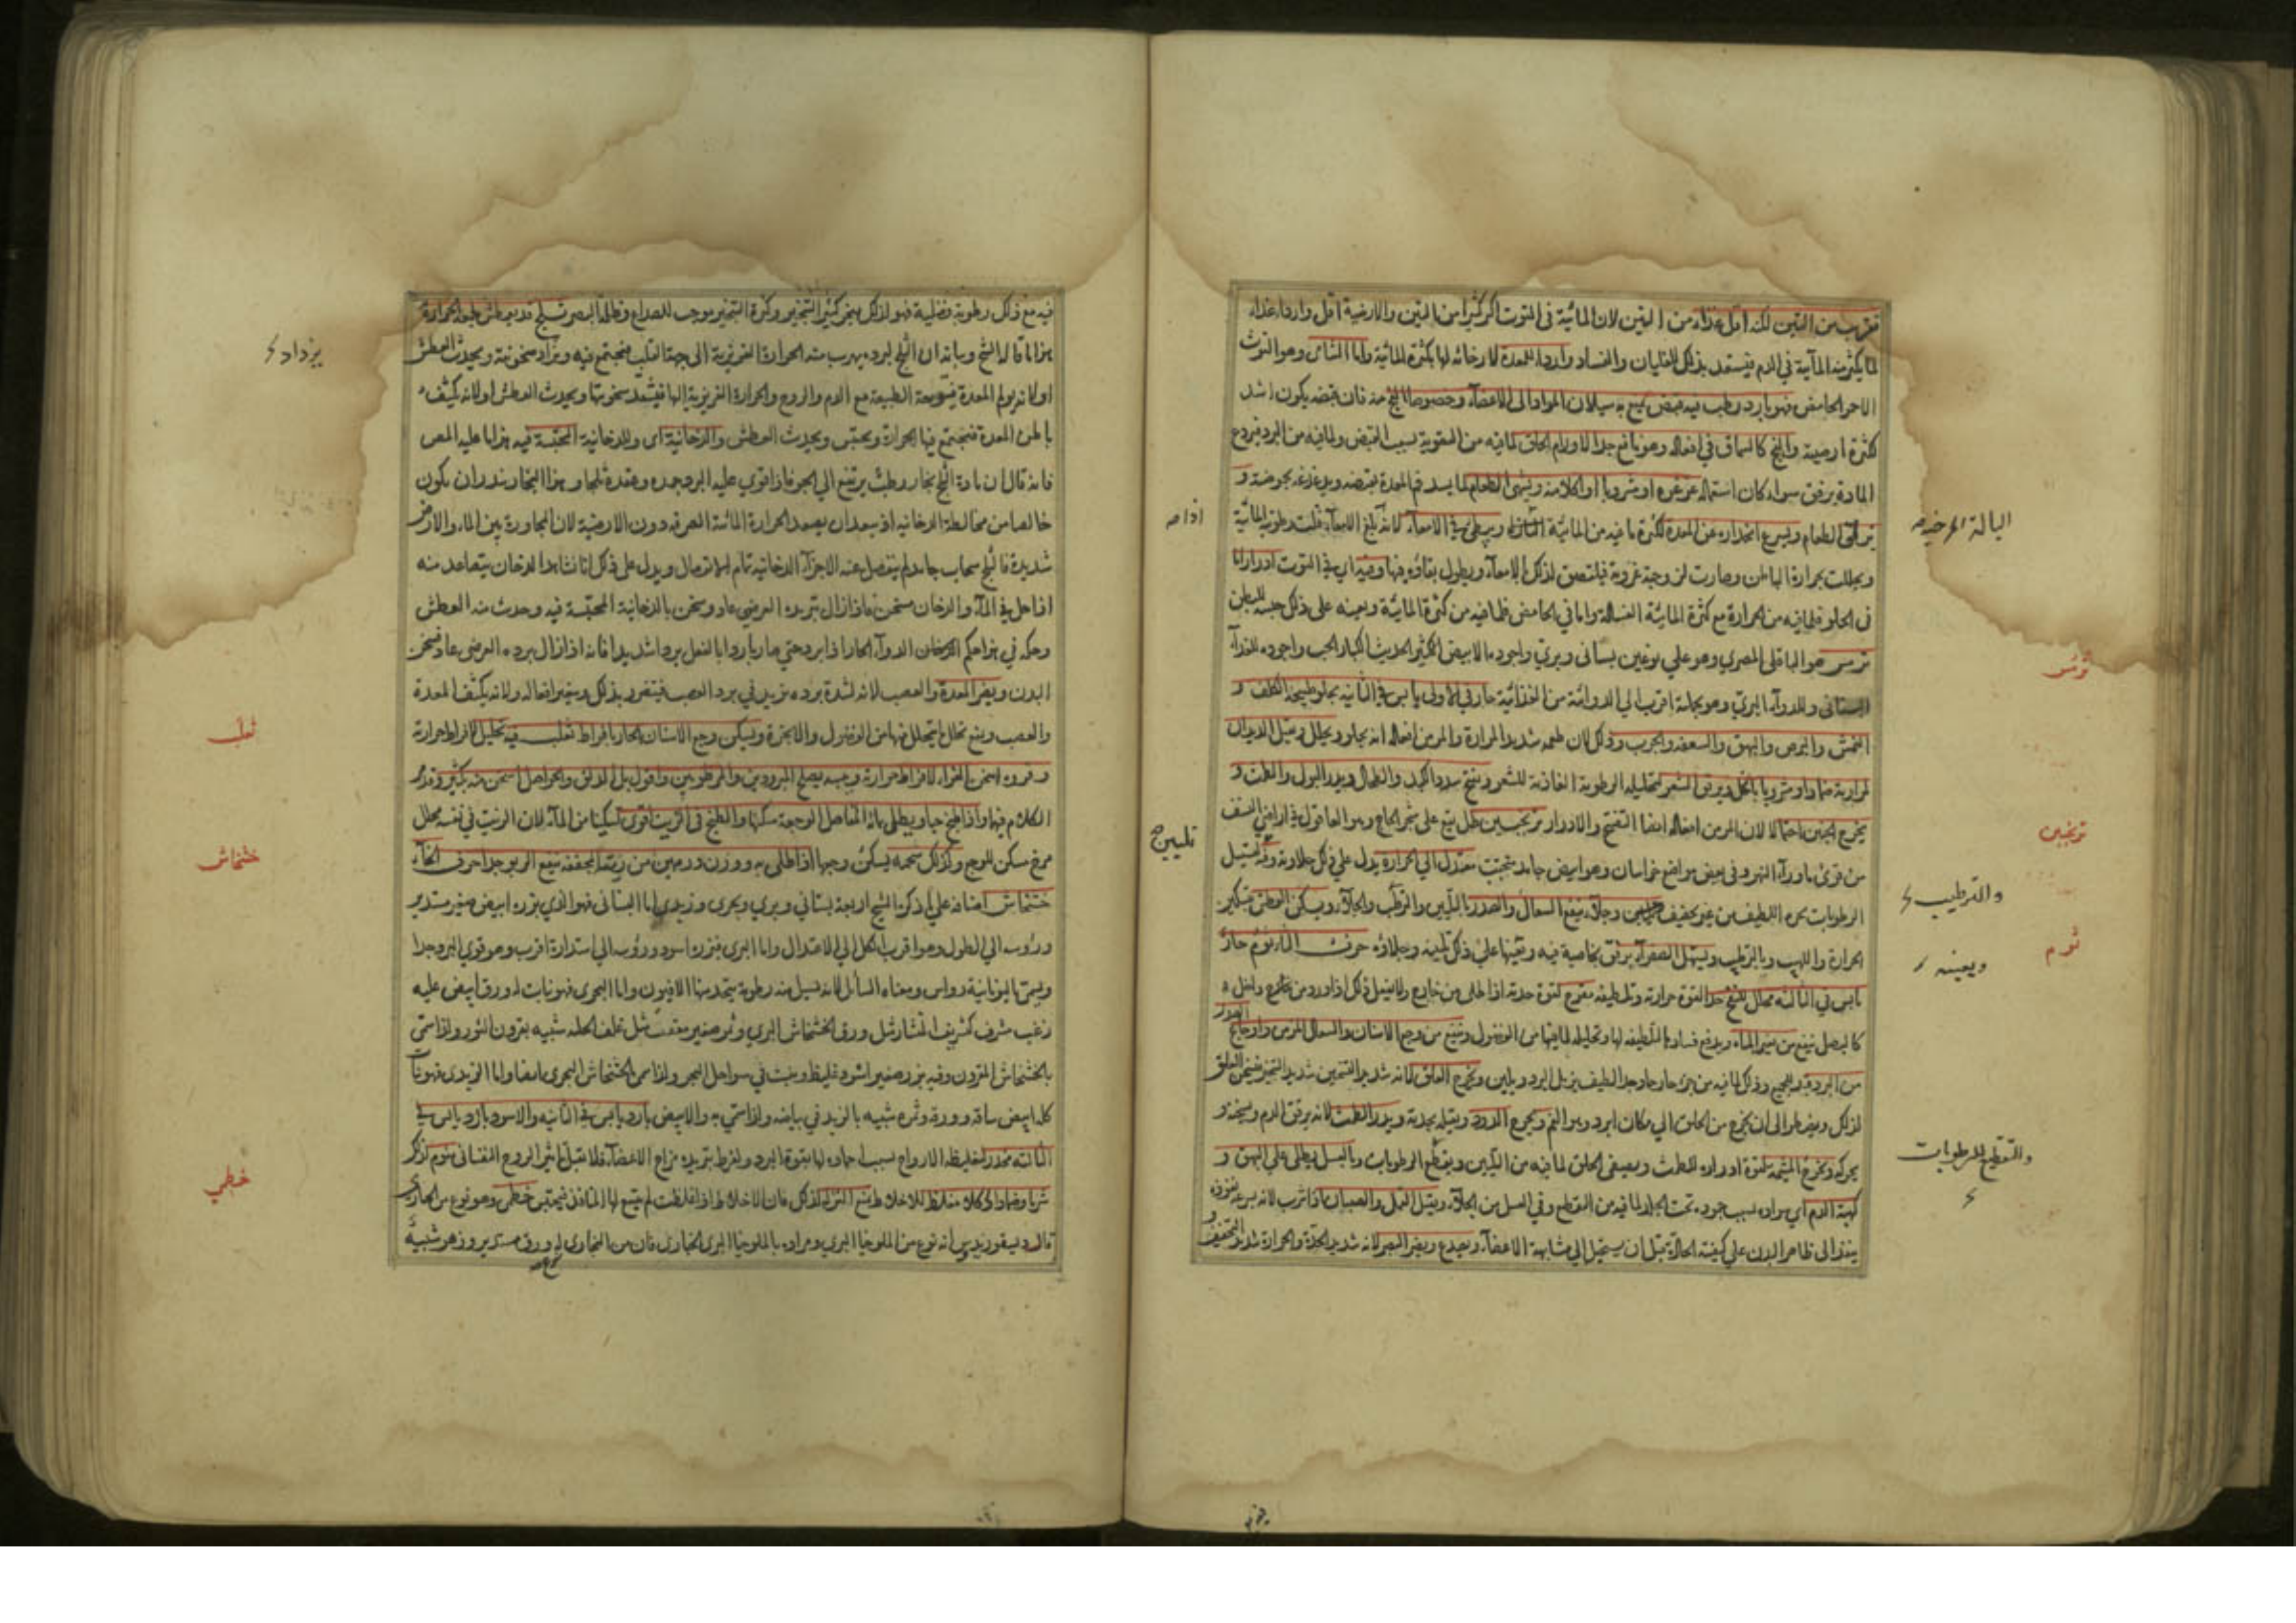 تقرب من التين لكنه اقل غذاء من التين لان المائية في التوت اكثر كثيرا من التين والارضية اقل واردا غذاء
لما يكثر منه المآئية في الدم فيستعد بذلك للغليان والفساد واردا للمعدة لارخائه لها بكثرة المائية واما الشامى وهو التوث
الاحمر الحامض فهو بارد رطب فيه قبض يمنع به سيلان المواد الى الاعضاء وخصوصا الفج منه فان قبضه يكون اشد
لكثرة ارضيته والفج كالسماق في افعاله وهو نافع جدا لاورام الحلق لما فيه من التقوية بسبب القبض ولما فيه من البرد فيردع
المادة برفق سواء كان استعماله غرغرة او مشروبا او اكلا منه ويشهى الطعام لما يسد فم المعدة بقبضه ويدغدغه بحموضته و
يزلق الطعام ويسرع انحداره عن المعدة لكثرة ما فيه من المائية ويبطئ في الامعاء لانه
ويحللت بحرارة الباطن وصارت لزوجة غروية فيلتصق لذلك بالامعاء ويطول بقاؤه فيها وفيه اى في التوت ادرار اما
في الحلو فلما فيه من الحرارة مع كثرة المائية الغسالة واما في الحامض فلما فيه من كثرة المائية ويعينه على ذلك حبسه للبطن
ترمس هو الباقلى المصري وهو على نوعين بستانى وبري واجوده الابيض الحديث الكبار الحب واجوده للغذاء
البستانى وللدوآء البري وهو بجملته اقرب الي الدوائية من الغذائية حار في الاولى يابس في الثانية يجلو طبيخه الكلف و
النمش والبرص والبهق والسعفة والجرب وذلك لان طعمه شديد المرارة والمر من افعاله انه يجلو ويحلل ويقتل الديدان
لمرارته ضمادا ومشروبا بالخل ويرقق الشعر لتحليله الرطوبة الغاذية للشعر ويفتح سدد الكبد والطحال ويدر البول والطمث و
يخرج الجنين احتمالا لان المر من افعاله ايضا التفتيح والادرار ترنجبين طل يقع على شجر الحاج وهو العاقول في اراضي
من قرى ماورآء النهر وفي بعض مواضع خراسان وهو ابيض جامد متحبب معتدل الي الحرارة يدل علي ذلك حلاوته
الرطوبات من غير تجفيف وجلآئه ينفع السعال والصدر بالتليين والترطيب والجلآء ويسكن العطش بتسكين
الحرارة واللهيب وبالترطيب ويسهل الصفرآء برفق بخاصية فيه ويعينها علي ذلك تليينه وجلاؤه حرف الثاء ثوم حار
يابس في الثالثة محلل للنفخ جدا لقوة حرارته وتلطيفه مقرح لقوة حدته اذا طلى من خارج ولا يفعل ذلك اذا ورد من داخل
كالبصل ينفع من تغير المياه ويدفع فسادها لتلطيفه لها وتحليله لما فيها من الفضول وينفع من وجع الاسنان والسعال المزمن واوجاع الصدر
من البرد وذلك لما فيه من حار جدا لطيف يزيل البرد ويلين ويخرج العلق لانه شديد التسخين
لذلك ويضطر الى ان يخرج من الحلق الي مكان ابرد وهو الفم ويخرج الدود ويقتله بحدته ويدر الطمث لانه يرقق الدم ويسخنه و
يحركه ويخرج المشيمة بقوة ادراره للطمث ويصفى الحلق لما فيه من التليين وبالعسل يطلى علي البهق و
كهبة الدم اي سواده بسبب جموده تحت الجلد لما فيه من التقطيع وفي العسل من الجلاء ويقتل القمل والصيبان اذا شرب لانه بسرعة نفوذه
ينفذ الى ظاهر البدن علي كيفيته الحادة قبل ان يستحيل الي مشابهة الاعضاء ويصدع ويضر البصر لانه شديد الحدة والحرارة شديد التجفيف و
ترمس
ترنجبين
والترطيب
ثوم
ويعينه
والتقطيع للرطوبات
فيه مع ذلك رطوبة فضلية فهو لذلك يبخر كثيرا التبخير وكثرة التبخير موجب للصداع وظلمة البصر ثلج قد يعطش الحرارة
هذا ما قاله الشيخ وبيانه ان الثلج لبرده يهرب منه الحرارة الغريزية الى جهة القلب فيجتمع فيه ويزاد سخونته ويحدث العطش
او لانه يولم المعدة الطبيعة مع الدم والروح والحرارة الغريزية اليها فيشتد سخونتها ويحدث العطش او لانه يكثف
باطن المعدة فيجتمع فيها الحرارة ويحتبس ويحدث العطش والدخانية اى وللدخانية المحتبسة فيه هذا ما عليه المص
فانه قال ان مادة الثلج بخار رطب يرتفع الي الجو فاذا قوي عليه البرد جمده وعقده ثلجا وهذا البخار يندر ان يكون
خالصا من مخالطة الدخانية اذ يبعد ان يصعد الحرارة المائية الصرفة دون الارضية لان المجاورة بين الماء والارض
شديدة فالثلج سحاب جامد لم ينفصل عنه الاجزآء الدخانية تمام الانفصال ويدل على ذلك انا نشاهد الدخان يتصاعد منه
اذا حل في المآء والدخان مسخن فاذا زال تبريده العرضي عاد وسخن بالدخانية المحتبسة فيه وحدث منه العطش
وحكمه في هذا حكم الدوآء الحار اذا برد حتي صار باردا بالفعل بردا شديدا فانه اذا زال برده العرضى عاد فسخن
البدن ويضر المعدة والعصب لانه لشدة برده يزيد في برد العصب فيتضرر بذلك ويتغير افعاله ولانه يكثف المعدة
والعصب ويمنع تحلل ما يتحلل منها من الفضول والابخرة ويسكن وجع الاسنان الحار بافراط ثعلب فيه تحليل لافراط حرارته
وفروه اسخن الفراء لافراط حرارته ولبسه يصلح للمبرودين والمرطوبين واقول بل الدلق والحواصل اسخن منه بكثير وقد مر
الكلام فيها واذا طبخ حيا ويطلى بمائه المفاصل الوجعة سكنها والطبخ في الزيت اقوى تسكينا من المآء لان الزيت في نفسه محلل
مرخ مسكن للوجع وكذلك شحمه يسكن وجعها اذا طلى به ووزن درهمين من ريته المجففة ينفع الربو جدا حرف الخاء
خشخاش اصنافه علي ما ذكره الشيخ اربعة بستاني وبري وبحرى وزبدي اما البستانى فهو الذي بزره ابيض صغير مستدير
ورؤسه الي الطول وهو اقرب الكل الي الاعتدال واما البرى فبزره اسود ورؤسه الي استدارة اقرب وهو قوي البرد جدا
ويسمى باليونانية رواس ومعناه السائل لانه تسيل منه رطوبة يتخذ منها الافيون واما البحرى فهو نبات له ورق ابيض عليه
زغب مشرف كتشريف المنشار مثل ورق الخشخاش البري وثمر صغير معقف مثل غلف الحلبة شبيه بقرون الثور ولذا سمى
بالخشخاش المقرن وفيه بزر صغير اسود غليظ وينبت في سواحل البحر ولذا سمى الخشخاش البحرى ايضا واما الزبدى فهو نبات
كله ابيض ساقه وورقه وثمره شبيه بالزبد في بياضه ولذا سمي به والابيض بارد يابس في الثانية والاسود بارد يابس في
الثالثة مخدر لتغليظه الارواح بسبب اجماده لها بقوة البرد ولفرط تبريده مزاج الاعضاء فلا تقبل تاثير الروح النفسانى منوم لذلك
شربا وضمادا واكلا مغلظ للاخلاط يمنع النزلة لذلك فان الاخلاط اذا غلظت لم يتسع لها المنافذ فيحتبس خطمى وهو نوع من الخبازى
قال ديسقوريدس انه نوع من الملوخيا البري ومراده بالملوخيا البرى الخبازى فان من الخبازى له ورق مستدير وزهر شبيه
يزداد
ثعلب
خشخاش
خطمي